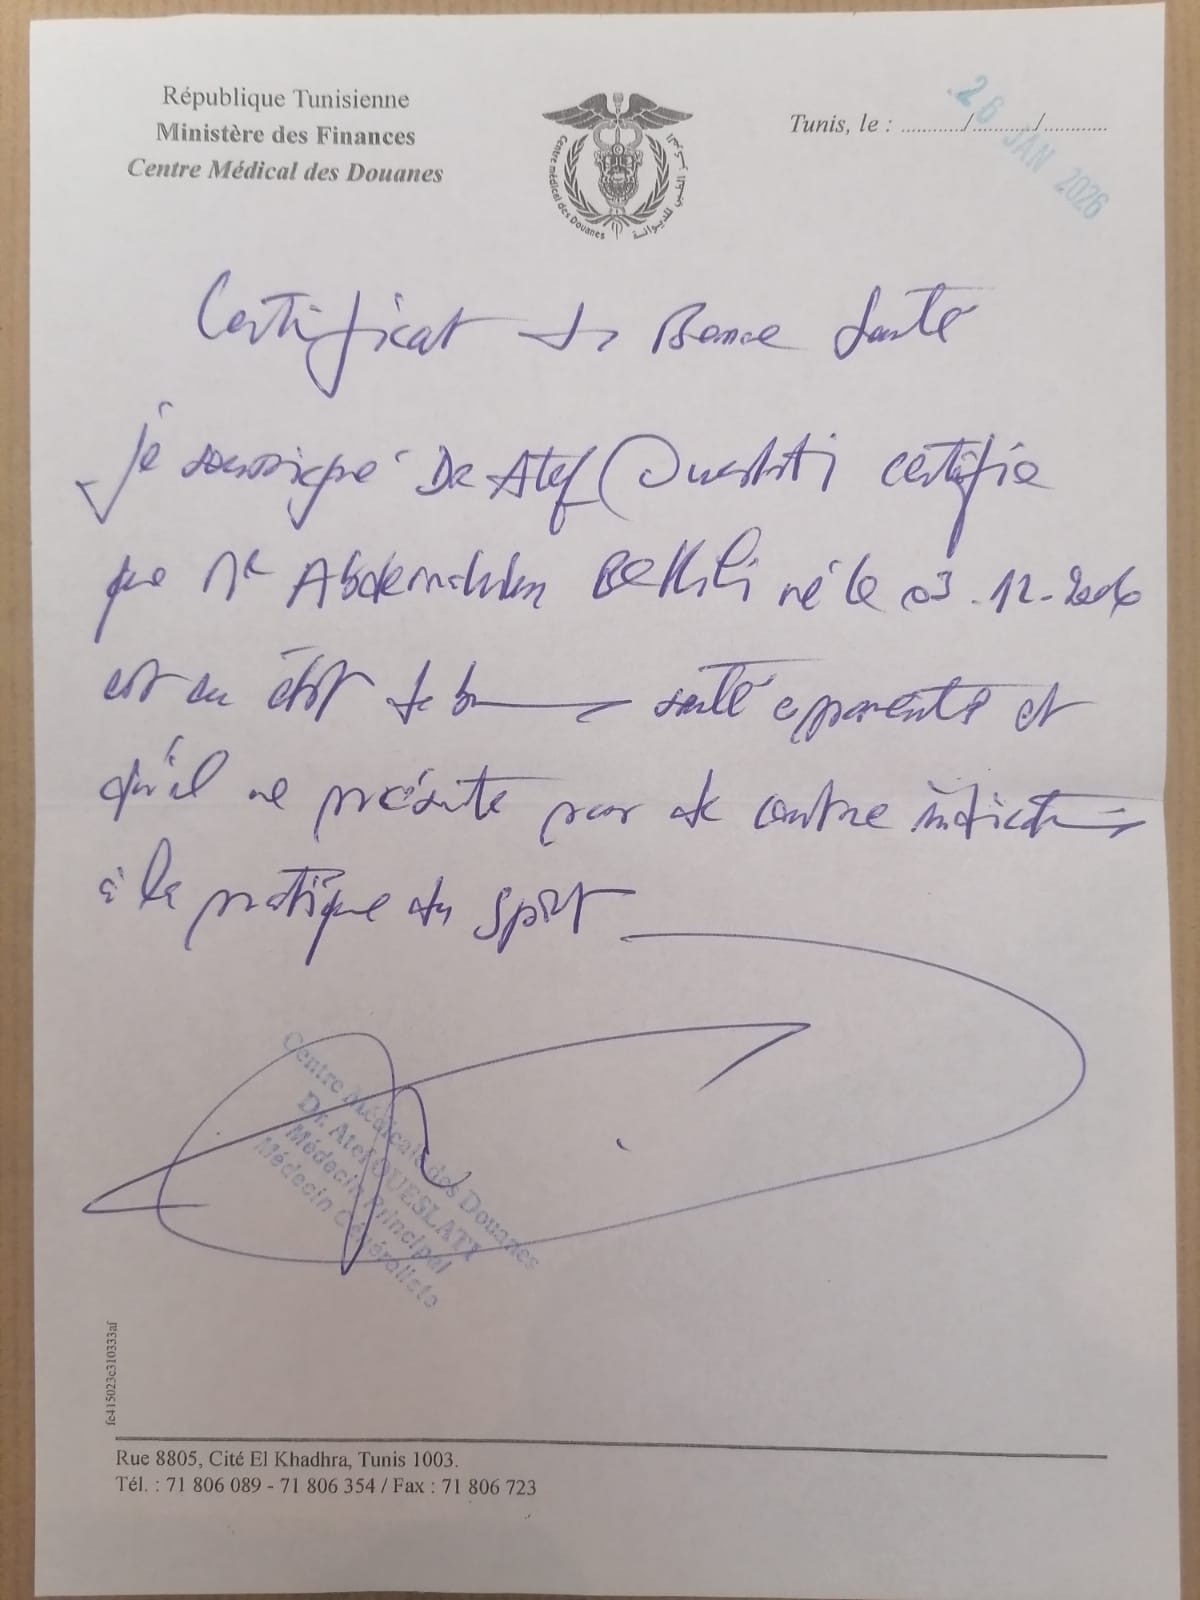 République Tunisienne
Ministère des Finances
Centre Médical des Douanes
Centre médical des Douanes
المركز الطبي للديوانة
Tunis, le : ............/............/............
26 JAN 2026
Certificat de Bonne Santé
je soussigné Dr Atef Oueslati certifie
que Mr Bekkli né le 03.12.2006
est en état de bonne santé apparente et
qu'il ne présente pas de contre indication
à la pratique du sport
Centre Médicale des Douanes
Dr. Atef OUESLATI
Médecin Principal
Médecin Généraliste
fe415023c310333af
Rue 8805, Cité El Khadhra, Tunis 1003.
Tél. : 71 806 089 - 71 806 354 / Fax : 71 806 723